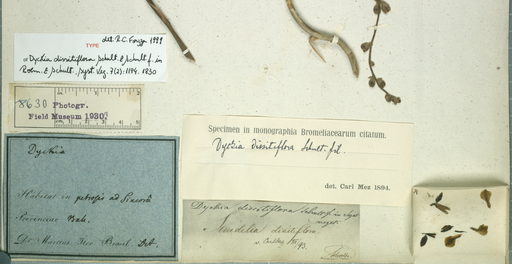 det. R.C. Forzza 1999
TYPE
Dyckia dissitiflora Schult. & Schult. f. in
Roem. & Schult., Syst. Veg. 7(2): 1194. 1830
8630 Photogr.
Field Museum 1930.
Dyckia
Habitat in petrosis ad
Provinciae Bah.
Dr. Martius Iter Brasil. Deb.
Specimen in monographia Bromeliacearum citatum.
Dyckia dissitiflora Schult. fil.
det. Carl Mez 1894.
Dyckia dissitiflora Schult. f. in Syst
veget.
dissitiflora